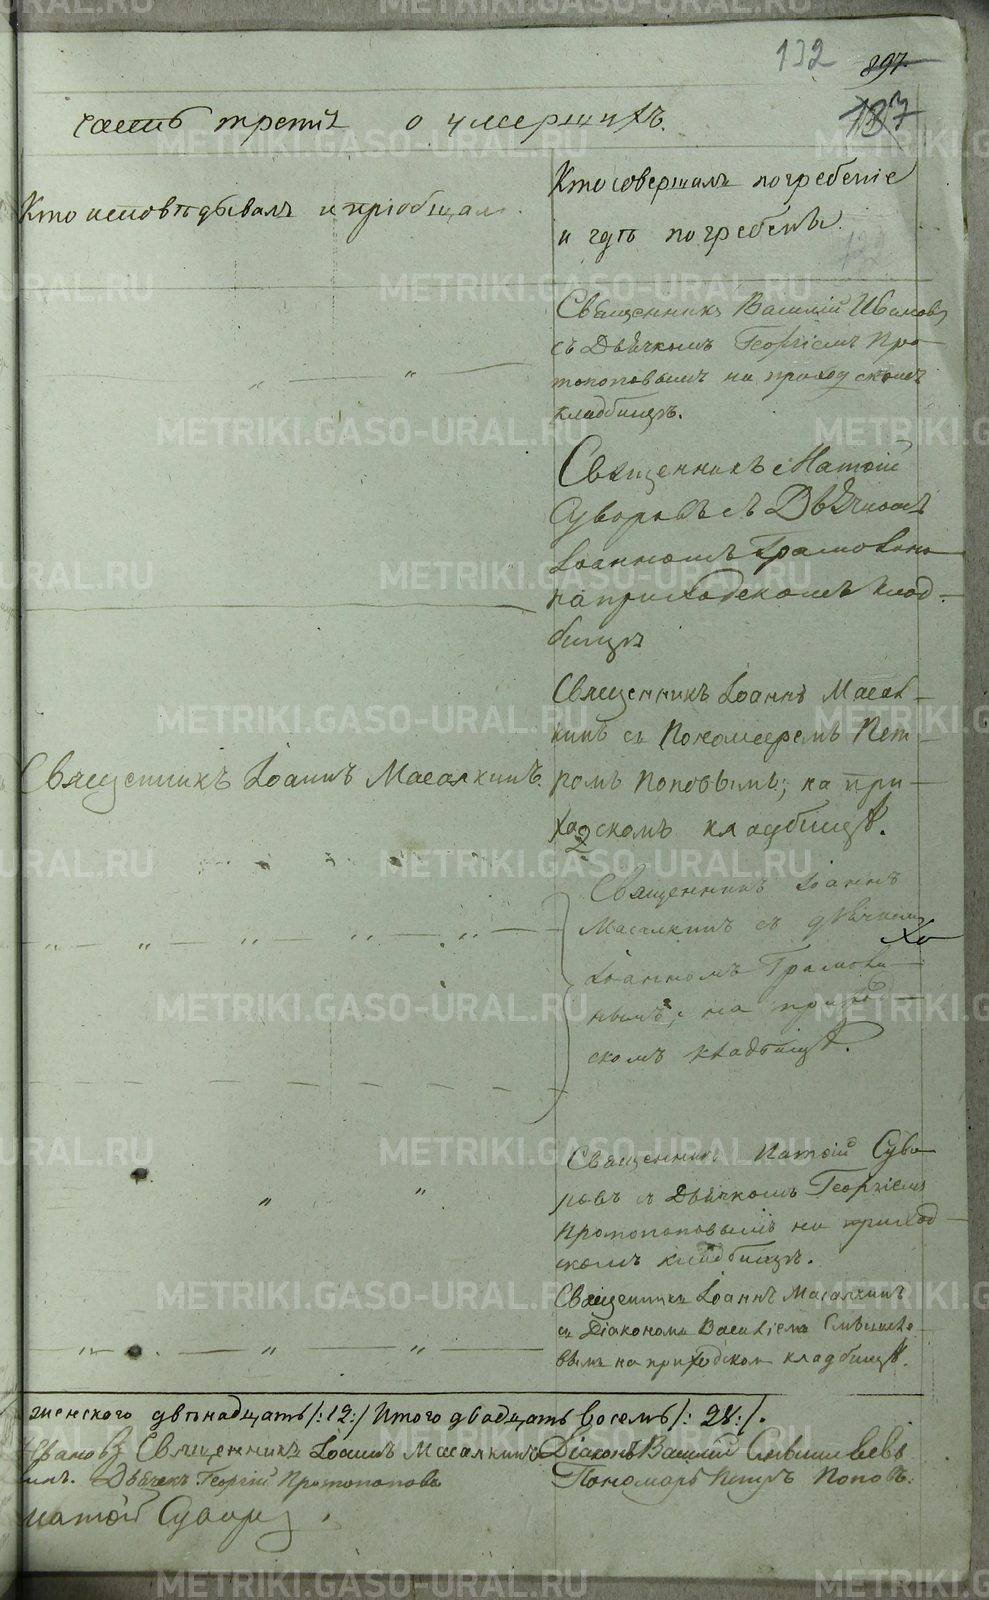 132 897
137
часть третія о умершихъ.
Кто исповѣдывалъ и пріобщал
Кто совершалъ погребеніе
и гдѣ погребены.
Священникъ Василій Иванов
съ Дьячкомъ Георгіемъ Про
топоповымъ на приходскомъ
кладбищѣ.
Священникъ Ипатій
Суворовъ съ Дьячкомъ
Іоанномъ
на приходскомъ клад-
бищѣ
Священникъ Іоаннъ Масал-
кинъ съ Пономаремъ Пет-
ромъ Поповымъ; на при-
ходскомъ кладбищѣ.
Священникъ Іоаннъ Масалкинъ.
Священникъ Іоаннъ
Масалкинъ съ дьячком
Іоанномъ
на прихо-
скомъ кладбищѣ.
Священник Ипатій Суво
ровъ съ Дьячкомъ Георгіемъ
Протопоповымъ на приход-
скомъ кладбищѣ.
Священникъ Іоаннъ Масалкинъ
съ Діакономъ Василіемъ
вымъ на приходском кладбищѣ.
женского двѣнадцать /:12:/ Итого двадцать восемь /: 28:/.
Священникъ Іоаннъ Масалкинъ Діаконъ Василій
Дьячекъ Георгій Протопоповъ Пономарь Петръ Поповъ.
Ипатій Суворов
METRIKI.GASO-URAL.RU